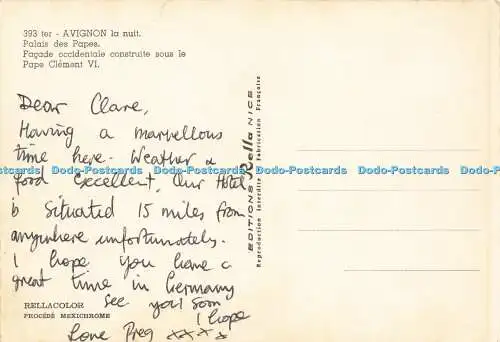 393 ter - AVIGNON la nuit.
Palais des Papes.
Façade occidentale construite sous le
Pape Clément VI.
Dear Clare,
Having a marvellous
time here. Weather &
food excellent. Our Hotel
is situated 15 miles from
anywhere unfortunately.
I hope you have a
great time in Germany
see you soon
I hope
Love Preg xxxx
RELLACOLOR
PROCÉDÉ MEXICHROME
EDITIONS Rella NICE
Reproduction Interdite - Fabrication Française
Dodo-Postcards Dodo-Postcards Dodo-Postcards Dodo-Postcards Dodo-Postcards Dodo-Postcards